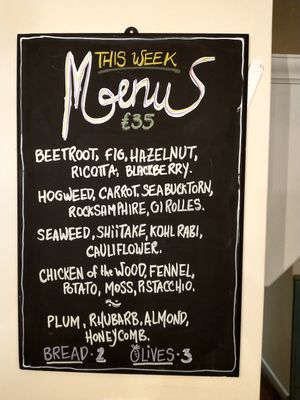 THIS WEEK
Menus
£35
BEETROOT, FIG, HAZELNUT,
RICOTTA, BLACKBERRY.
HOGWEED, CARROT, SEABUCKTORN,
ROCKSAMPHIRE, GIROLLES.
SEAWEED, SHIITAKE, KOHLRABI,
CAULIFLOWER.
CHICKEN of the WOOD, FENNEL,
POTATO, MOSS, PISTACCHIO.
~
PLUM, RHUBARB, ALMOND,
HONEYCOMB.
BREAD · 2 OLIVES · 3